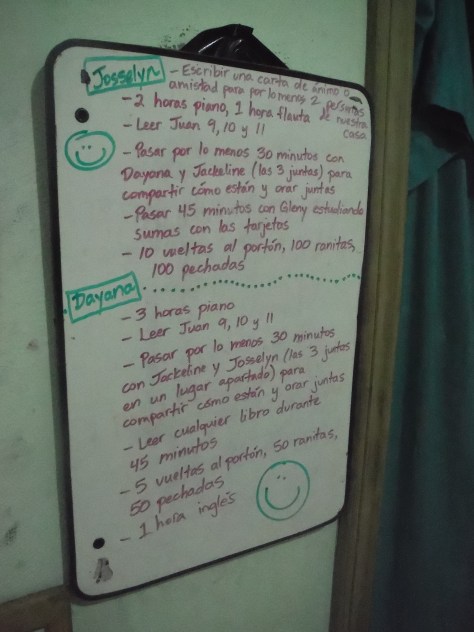 Josselyn - Escribir una carta de ánimo o
amistad para por lo menos 2 personas
de nuestra
casa
- 2 horas piano, 1 hora flauta
- Leer Juan 9, 10 y 11
- Pasar por lo menos 30 minutos con
Dayana y Jackeline (las 3 juntas) para
compartir cómo están y orar juntas
- Pasar 45 minutos con Gleny estudiando
sumas con las tarjetas
- 10 vueltas al portón, 100 ranitas,
100 pechadas
Dayana
- 3 horas piano
- Leer Juan 9, 10 y 11
- Pasar por lo menos 30 minutos
con Jackeline y Josselyn (las 3 juntas
en un lugar apartado) para
compartir cómo están y orar juntas
- Leer cualquier libro durante
45 minutos
- 5 vueltas al portón, 50 ranitas,
50 pechadas
- 1 hora inglés